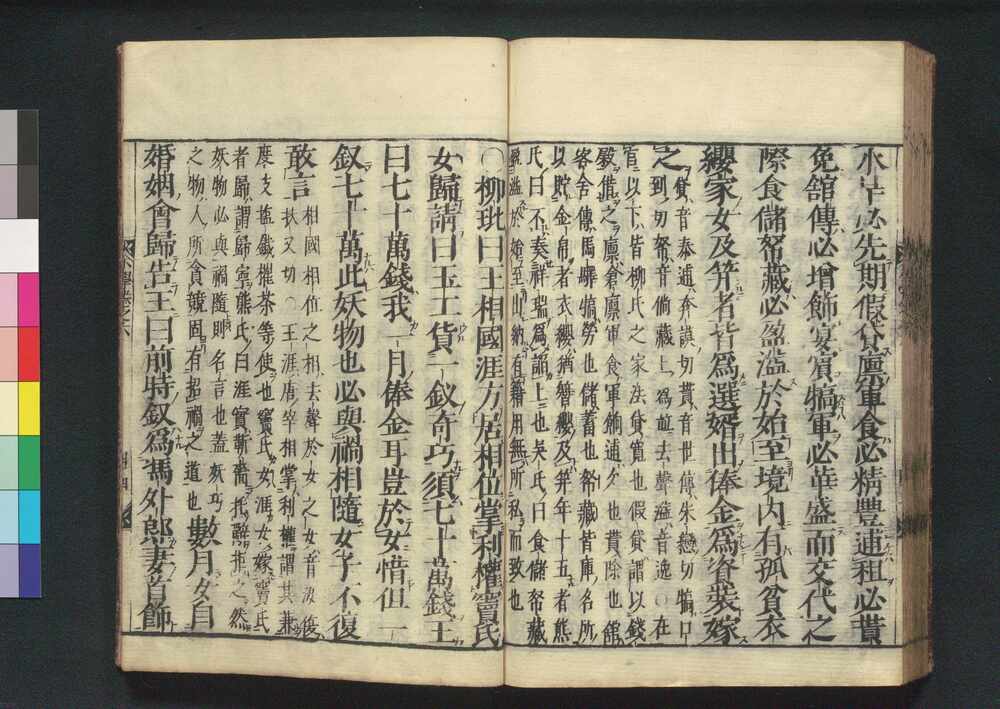 水旱必先期假貸廩軍食必精豐逋租必貰
免舘傳必增飾宴賓犒軍必華盛而交代之
際食儲帑藏必盈溢於始至境內有孤貧衣
纓家女及笄者皆爲選婿出俸金爲資裝嫁
之
貸音泰逋奔謨切貰音世傳朱戀切犒口
到切帑音倘藏上爲並去聲溢音逸○在
官以下皆柳氏之家法貸寬也假貸謂以錢
糓借之廩倉廩軍食軍餉逋欠也貰除也舘
客舍傳馬驛犒勞也儲蓄也帑藏皆庫名所
以貯金帛者衣纓猶簪纓及笄年十五者熊
氏曰不奏祥瑞爲謟上也吳氏曰食儲帑藏
盈溢於始至出納有籍用無所私而致也
○柳玭曰王相國涯方居相位掌利權竇氏
女歸請曰玉工貨一釵奇巧須七十萬錢王
曰七十萬錢我一月俸金耳豈於女惜但一
釵七十萬此妖物也必與禍相隨女子不復
敢言
相國相位之相去聲於女之女音汝復
扶又切○王涯唐宰相掌利權謂其兼
度支塩鐵榷茶等使也竇氏女涯女嫁竇氏
者歸謂歸寧熊氏曰涯實靳嗇托辭拒之然
妖物必與禍隨則名言也盖妖巧
之物人所貪兢固有招禍之道也
數月女自
婚姻會歸告王曰前時釵爲馮外郎妻首飾
四